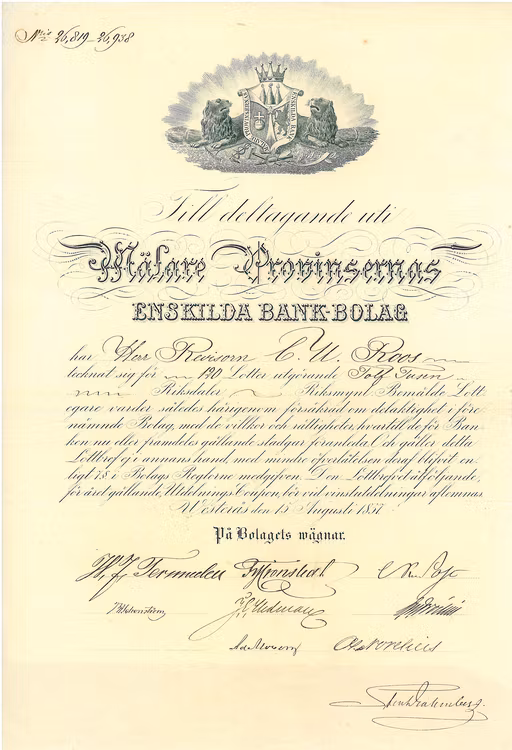 26,819-26,938
Till deltagande uti
Mälare Provinsernas
ENSKILDA BANK-BOLAG
har Herr Revisorn C. U. Roos
tecknat sig för 120 Lotter utgörande Tolf Tusen
Riksdaler Riksmynt. Bemälde Lott
egare varder således härigenom försäkrad om delaktighet i före
nämnde Bolag, med de villkor och rättigheter, hvartill de för Ban
ken nu eller framdeles gällande stadgar föranleda. Och gäller detta
Lottbref ej i annans hand, med mindre öfverlåtelsen deraf blifvit en
ligt 7 § i Bolags Reglorne medgifven. Den Lottbrefvet åtföljande,
för året gällande, Utdelnings Coupon, bör vid vinstutdelningar aflemnas.
Westerås den 15 Augusti 1857
På Bolagets wägnar.